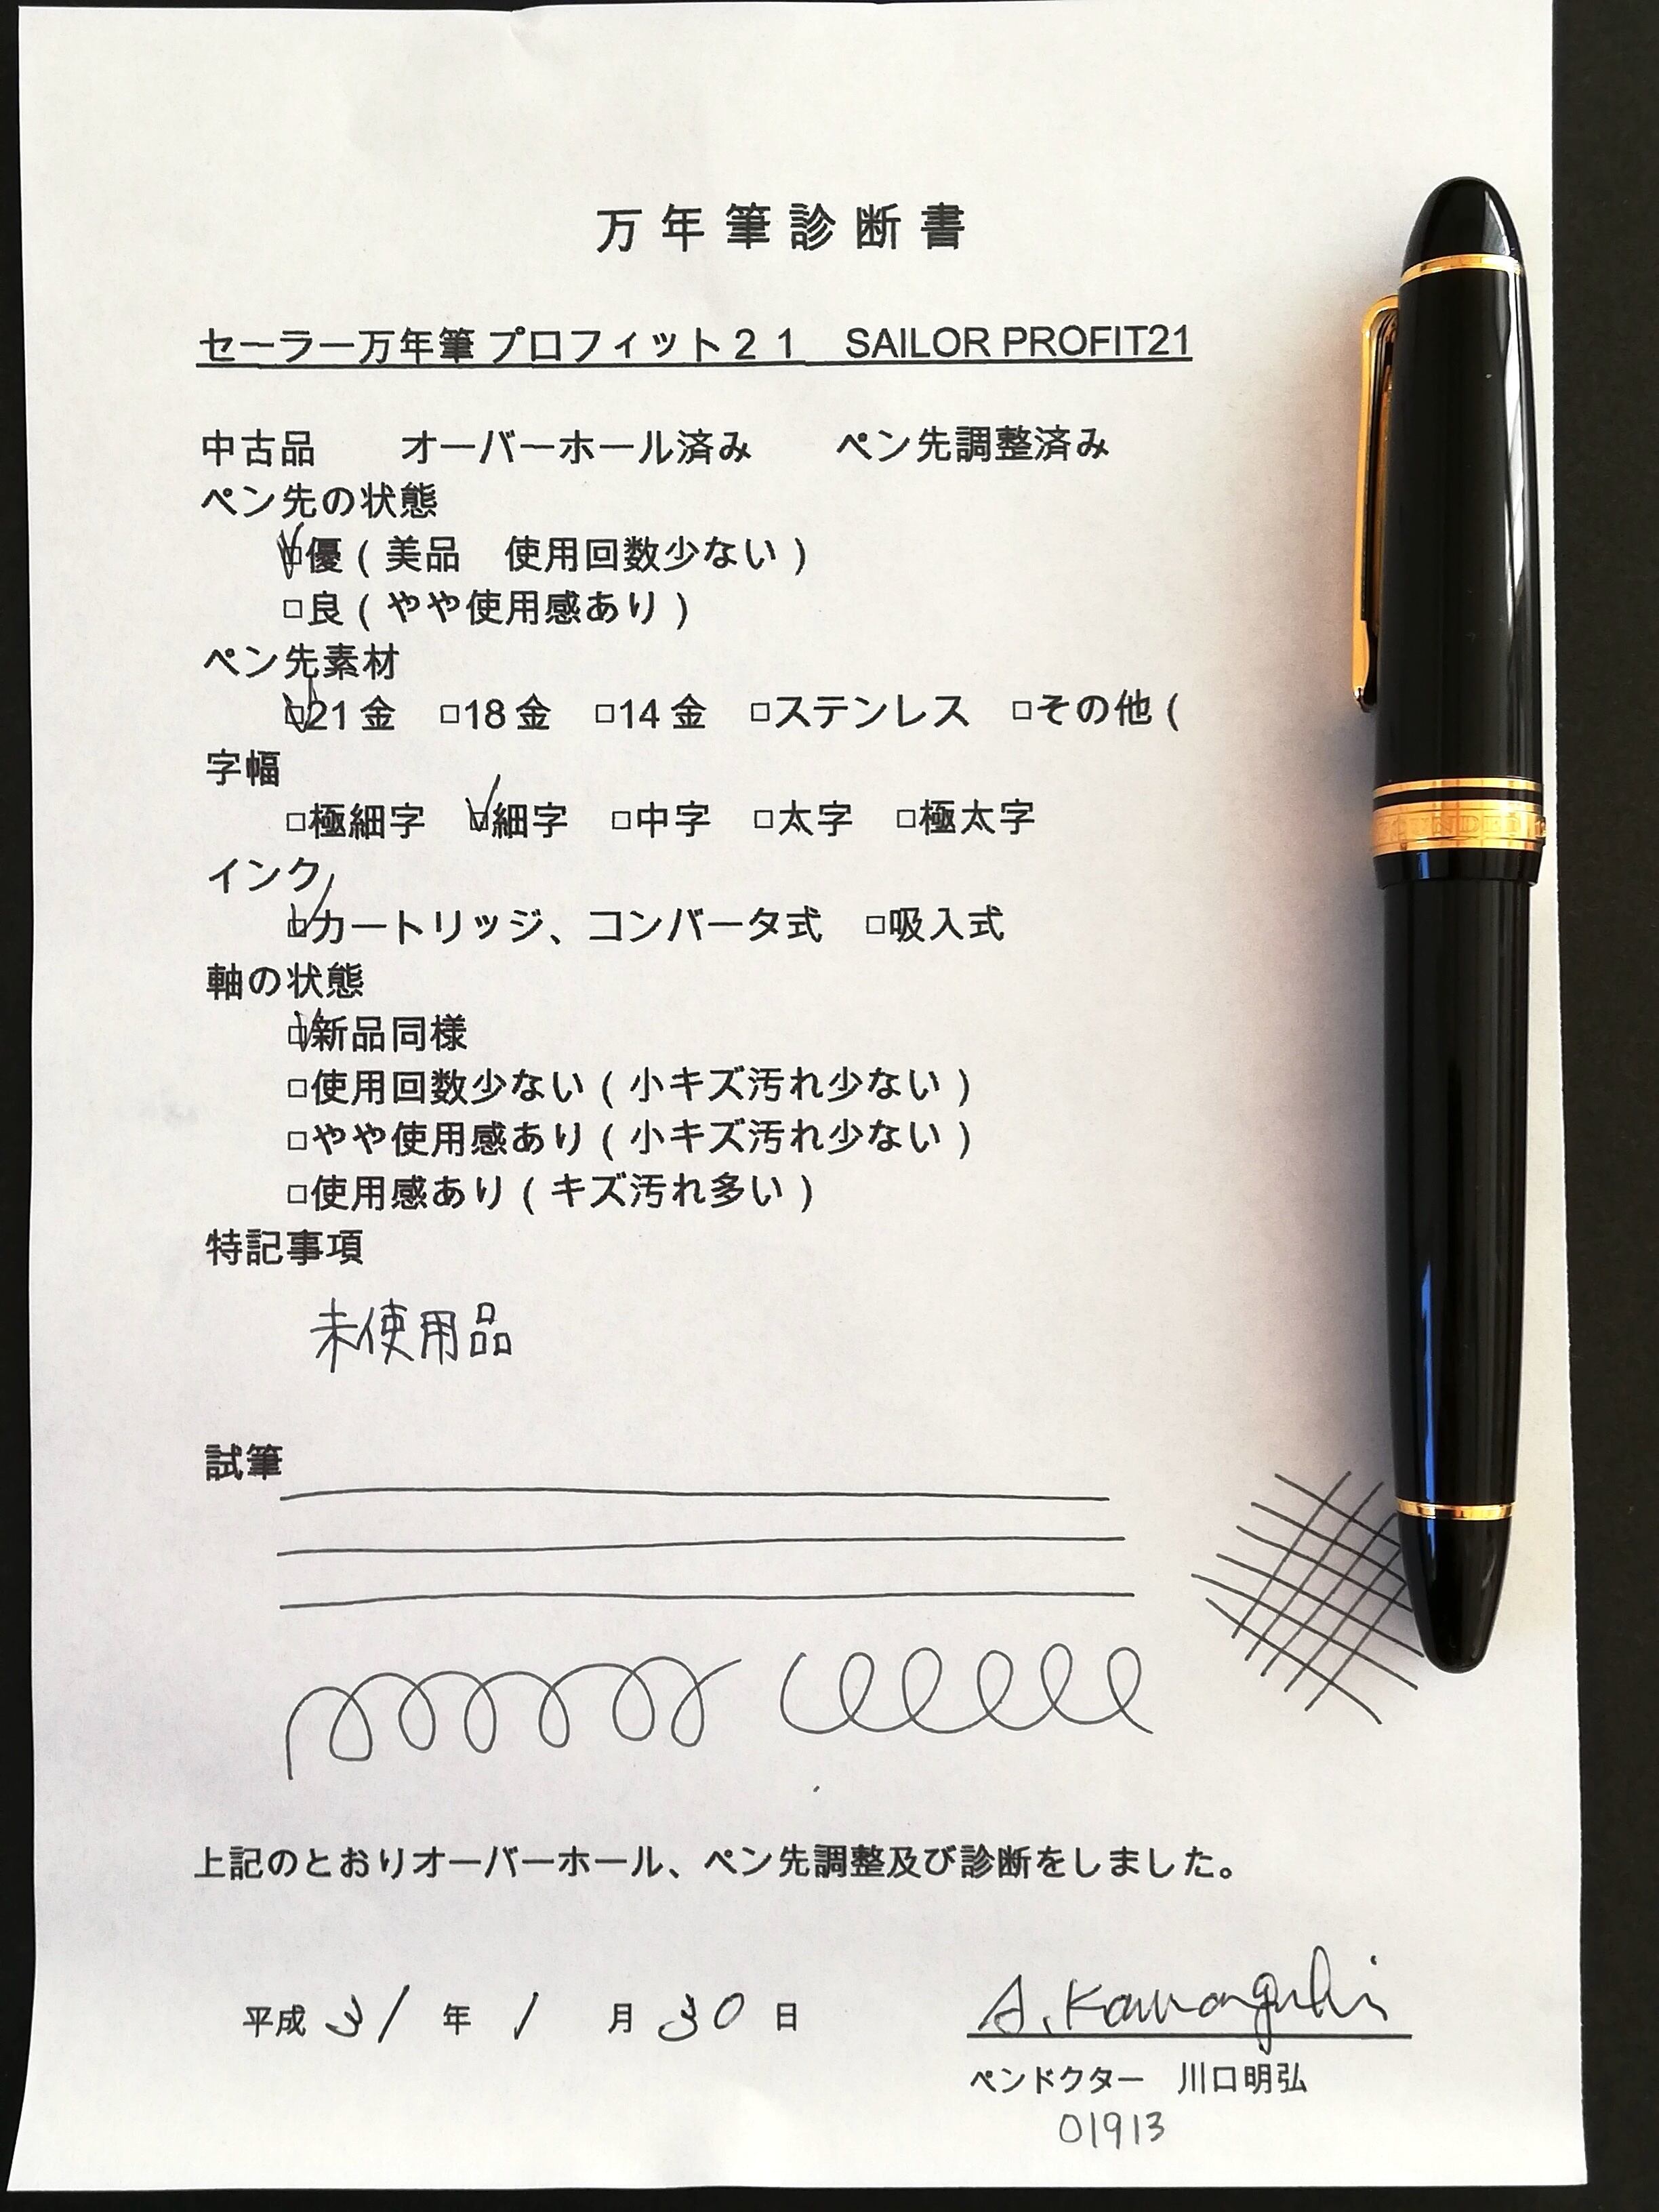 万年筆診断書
セーラー万年筆 プロフィット21　SAILOR PROFIT21
中古品　オーバーホール済み　ペン先調整済み
ペン先の状態
☑優（美品　使用回数少ない）
□良（やや使用感あり）
ペン先素材
☑21金　□18金　□14金　□ステンレス　□その他（
字幅
□極細字　☑細字　□中字　□太字　□極太字
インク
☑カートリッジ、コンバータ式　□吸入式
軸の状態
☑新品同様
□使用回数少ない（小キズ汚れ少ない）
□やや使用感あり（小キズ汚れ少ない）
□使用感あり（キズ汚れ多い）
特記事項
未使用品
試筆
上記のとおりオーバーホール、ペン先調整及び診断をしました。
平成 31 年 1 月 30 日
A. Kawaguchi
ペンドクター　川口明弘
01913